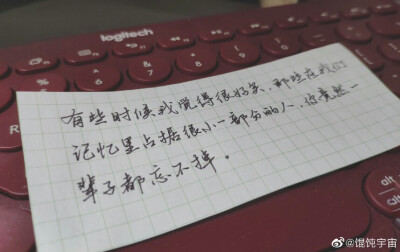 logitech
有些时候我觉得很好笑、那些在我们
记忆里占据很小一部分的人、你竟然一
辈子都忘不掉。
alt
@馄饨宇宙